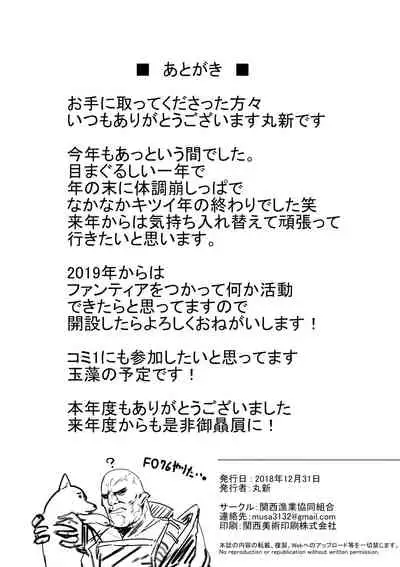 ■ あとがき ■
お手に取ってくださった方々
いつもありがとうございます丸新です
今年もあっという間でした。
目まぐるしい一年で
年の末に体調崩しっぱで
なかなかキツイ年の終わりでした笑
来年からは気持ち入れ替えて頑張って
行きたいと思います。
2019年からは
ファンティアをつかって何か活動
できたらと思ってますので
開設したらよろしくおねがいします！
コミ1にも参加したいと思ってます
玉藻の予定です！
本年度もありがとうございました
来年度からも是非御贔屓に！
FO76やりた・・。
発行日：2018年12月31日
発行者：丸新
サークル：関西漁業協同組合
連絡先：musa3132@gmail.com
印刷：関西美術印刷株式会社
本誌の内容の転載、複製、Webへのアップロード等を一切禁じます。
No reproduction or republication without written permission.